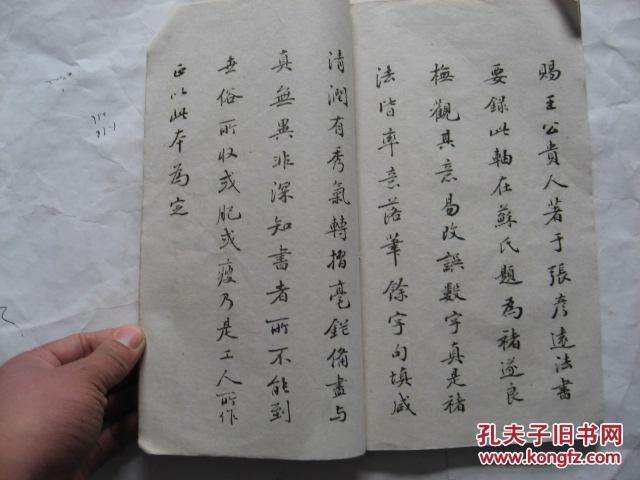 賜王公貴人著于張彥遠法書
要録此軸在蘇氏題為褚遂良
橅觀其意易改誤數字真是褚
法皆率意落筆餘字勾填咸
清潤有秀氣轉摺毫鋩備盡与
真無異非深知書者所不能到
世俗所収或肥或瘦乃是工人所作
正以此本為定
孔夫子旧书网
www.kongfz.com